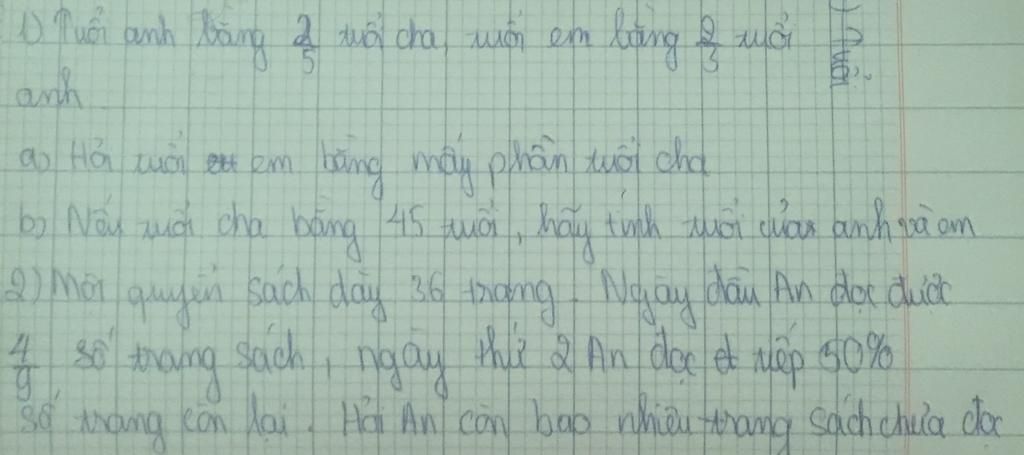 1) Tuổi anh bằng 2/5 tuổi cha, tuổi em bằng 2/3 tuổi
anh
a) Hỏi tuổi em bằng mấy phần tuổi cha
b) Nếu tuổi cha bằng 45 tuổi, hãy tính tuổi của anh và em
2) Một quyển sách dày 36 trang. Ngày đầu An đọc được
4/9 số trang sách, ngày thứ 2 An đọc tiếp 50%
số trang còn lại. Hỏi An còn bao nhiêu trang sách chưa đọc